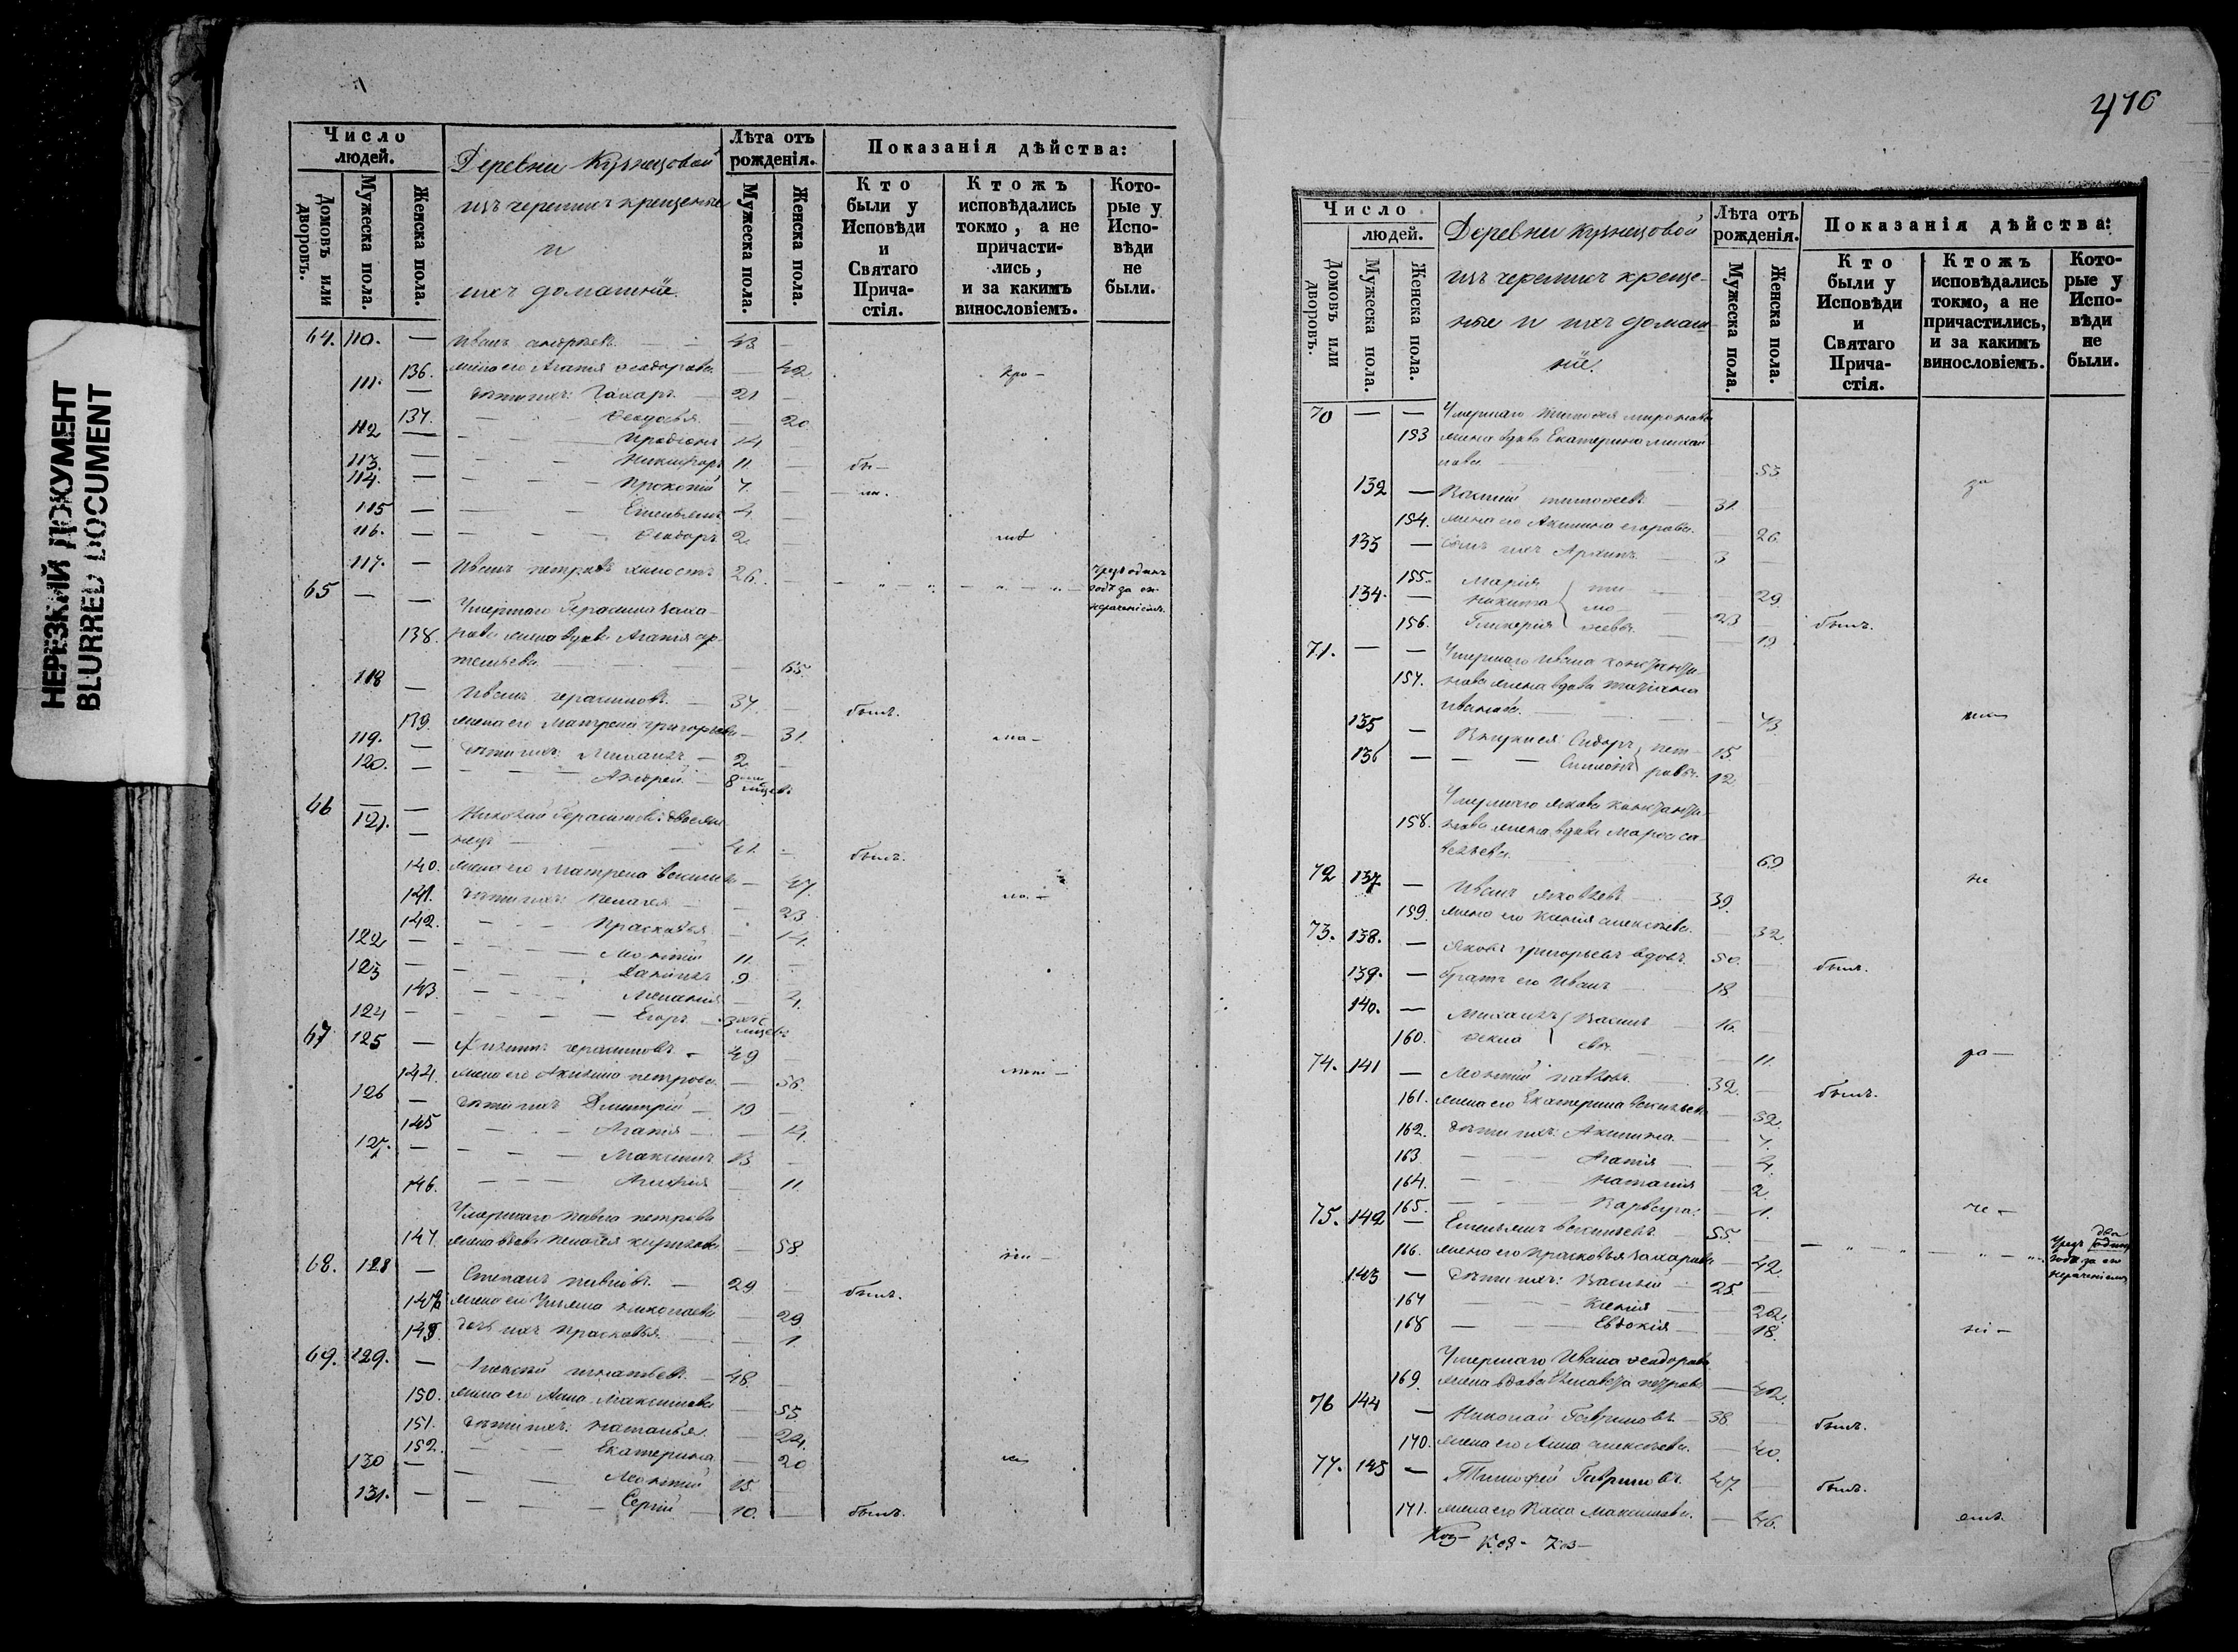 НЕРЕЗКИЙ ДОКУМЕНТ
BLURRED DOCUMENT
Число людей.
Домовъ или дворовъ.
Мужеска пола.
Женска пола.
Деревни Кузнецовой
изъ черемисъ крещеные
и
ихъ домашніе.
Лѣта отъ рожденія.
Мужеска пола.
Женска пола.
Показанія дѣйства:
Кто были у Исповѣди и Святаго Причастія.
Ктожъ исповѣдались токмо, а не причастились, и за какимъ винословіемъ.
Которые у Исповѣди не были.
64. 110. — Иванъ Андреевъ — 43 —
136. жена его Агапія Ѳеодорова — 42
111. — дѣти ихъ: Захаръ 21 —
137. Ѳеодосья — 20
112 — Иродіонъ 14
113. — Никифоръ 11 —
114. — Прокопій 7. —
115 — Емельянъ 4 —
116. — Ѳеодоръ 2. —
117. — Иванъ Петровъ холостъ 26. — чрезъ одинъ годъ за не нераченіемъ
65 — — Умершаго Герасима Заха-
138. рова жена вдова Агапія Ар-
темьева — 65.
118 — Иванъ Герасимовъ. 37 — былъ.
139. жена его Матрена Григорьева — 31.
119. — дѣти ихъ: Михаилъ 2 —
120. — Андрей 8 мѣсяцевъ
66 — —
121. — Николай Герасимовъ
41. — былъ.
140. жена его Матрена Васильева — 47.
141. дѣти ихъ: Пелагея — 23
142. Прасковья — 14.
122 — Леонтій 11. —
123 — Даніилъ 9 —
143 Меланія — 4.
124 — Егоръ 3 мѣсяцевъ
67 125 — Филиппъ Герасимовъ 49 —
144. жена его Акилина Петрова — 56.
126 — дѣти ихъ Дмитрій 19 —
145 Агапія — 14.
127. — Максимъ 13 —
146. — 11.
Умершаго Павла Петрова
147 жена вдова Пелагея — 58.
68. 128 — Степанъ Павловъ. 29 — былъ.
148 жена его Ульяна Николаева — 29
149. дочь ихъ Прасковья — 1.
69. 129. — Алексѣй Игнатьевъ. 48. —
150. жена его Анна Максимова — 55.
151. дѣти ихъ: Наталья — 24.
152. Екатерина — 20
130 — Леонтій 15.
131. — Сергій 10. — былъ.
416
Число людей.
Домовъ или дворовъ.
Мужеска пола.
Женска пола.
Деревни Кузнецовой
изъ черемисъ креще-
ные и ихъ домаш-
ніе.
Лѣта отъ рожденія.
Мужеска пола.
Женска пола.
Показанія дѣйства:
Кто были у Исповѣди и Святаго Причастія.
Ктожъ исповѣдались токмо, а не причастились, и за какимъ винословіемъ.
Которые у Исповѣди не были.
70 — — Умершаго Тимофея Миронова
153 жена вдова Екатерина Михай-
лова — 53
132 — Василій Тимофеевъ 31. —
154. жена его Акилина Егорова. — 26.
133 — сынъ ихъ Архипъ 3 —
155. Марія — 29
134. — Никита Тимофеевы 23 — былъ.
156. Гликерія — 19
71. — — Умершаго Ивана Константи-
157. нова жена вдова Татіана
Иванова. — 73
135 — Внучата: Сидоръ 15.
136 — Симеонъ Петровы 12
Умершаго Якова Константи-
158. нова жена вдова Марѳа Са-
вельева — 69
72 137 — Иванъ Яковлевъ 39. не
159. жена его Ксенія Алексѣева. — 32
73. 138. — Яковъ Григорьевъ вдовъ. 50. — былъ.
139. — братъ его Иванъ 18 —
140. — Михаилъ Василь- 16. —
160. Ѳекла евы. — 11. ра —
74. 141 — Леонтій Павловъ 32. — былъ.
161. жена его Екатерина Васильева — 32.
162. дѣти ихъ: Акилина — 7.
163 Агапія — 4.
164. Наталія — 2.
165. Варвара: — 1. че —
75. 142 — Емельянъ Васильевъ 55. чрезъ два года за не нераченіемъ
166. жена его Прасковья Захарова — 42.
143 — дѣти ихъ: Василій 25. —
167 Ксенія — 22.
168 Евдокія — 18. ні —
Умершаго Ивана Ѳеодорова
169. жена вдова Елисавета Петрова — 42.
76 144 — Николай Гавриловъ 38 — былъ.
170. жена его Анна Алексѣева. — 40.
77. 145 — Тимофей Гавриловъ 47. — былъ.
171. жена его Васса Максимова. — 46. емъ.